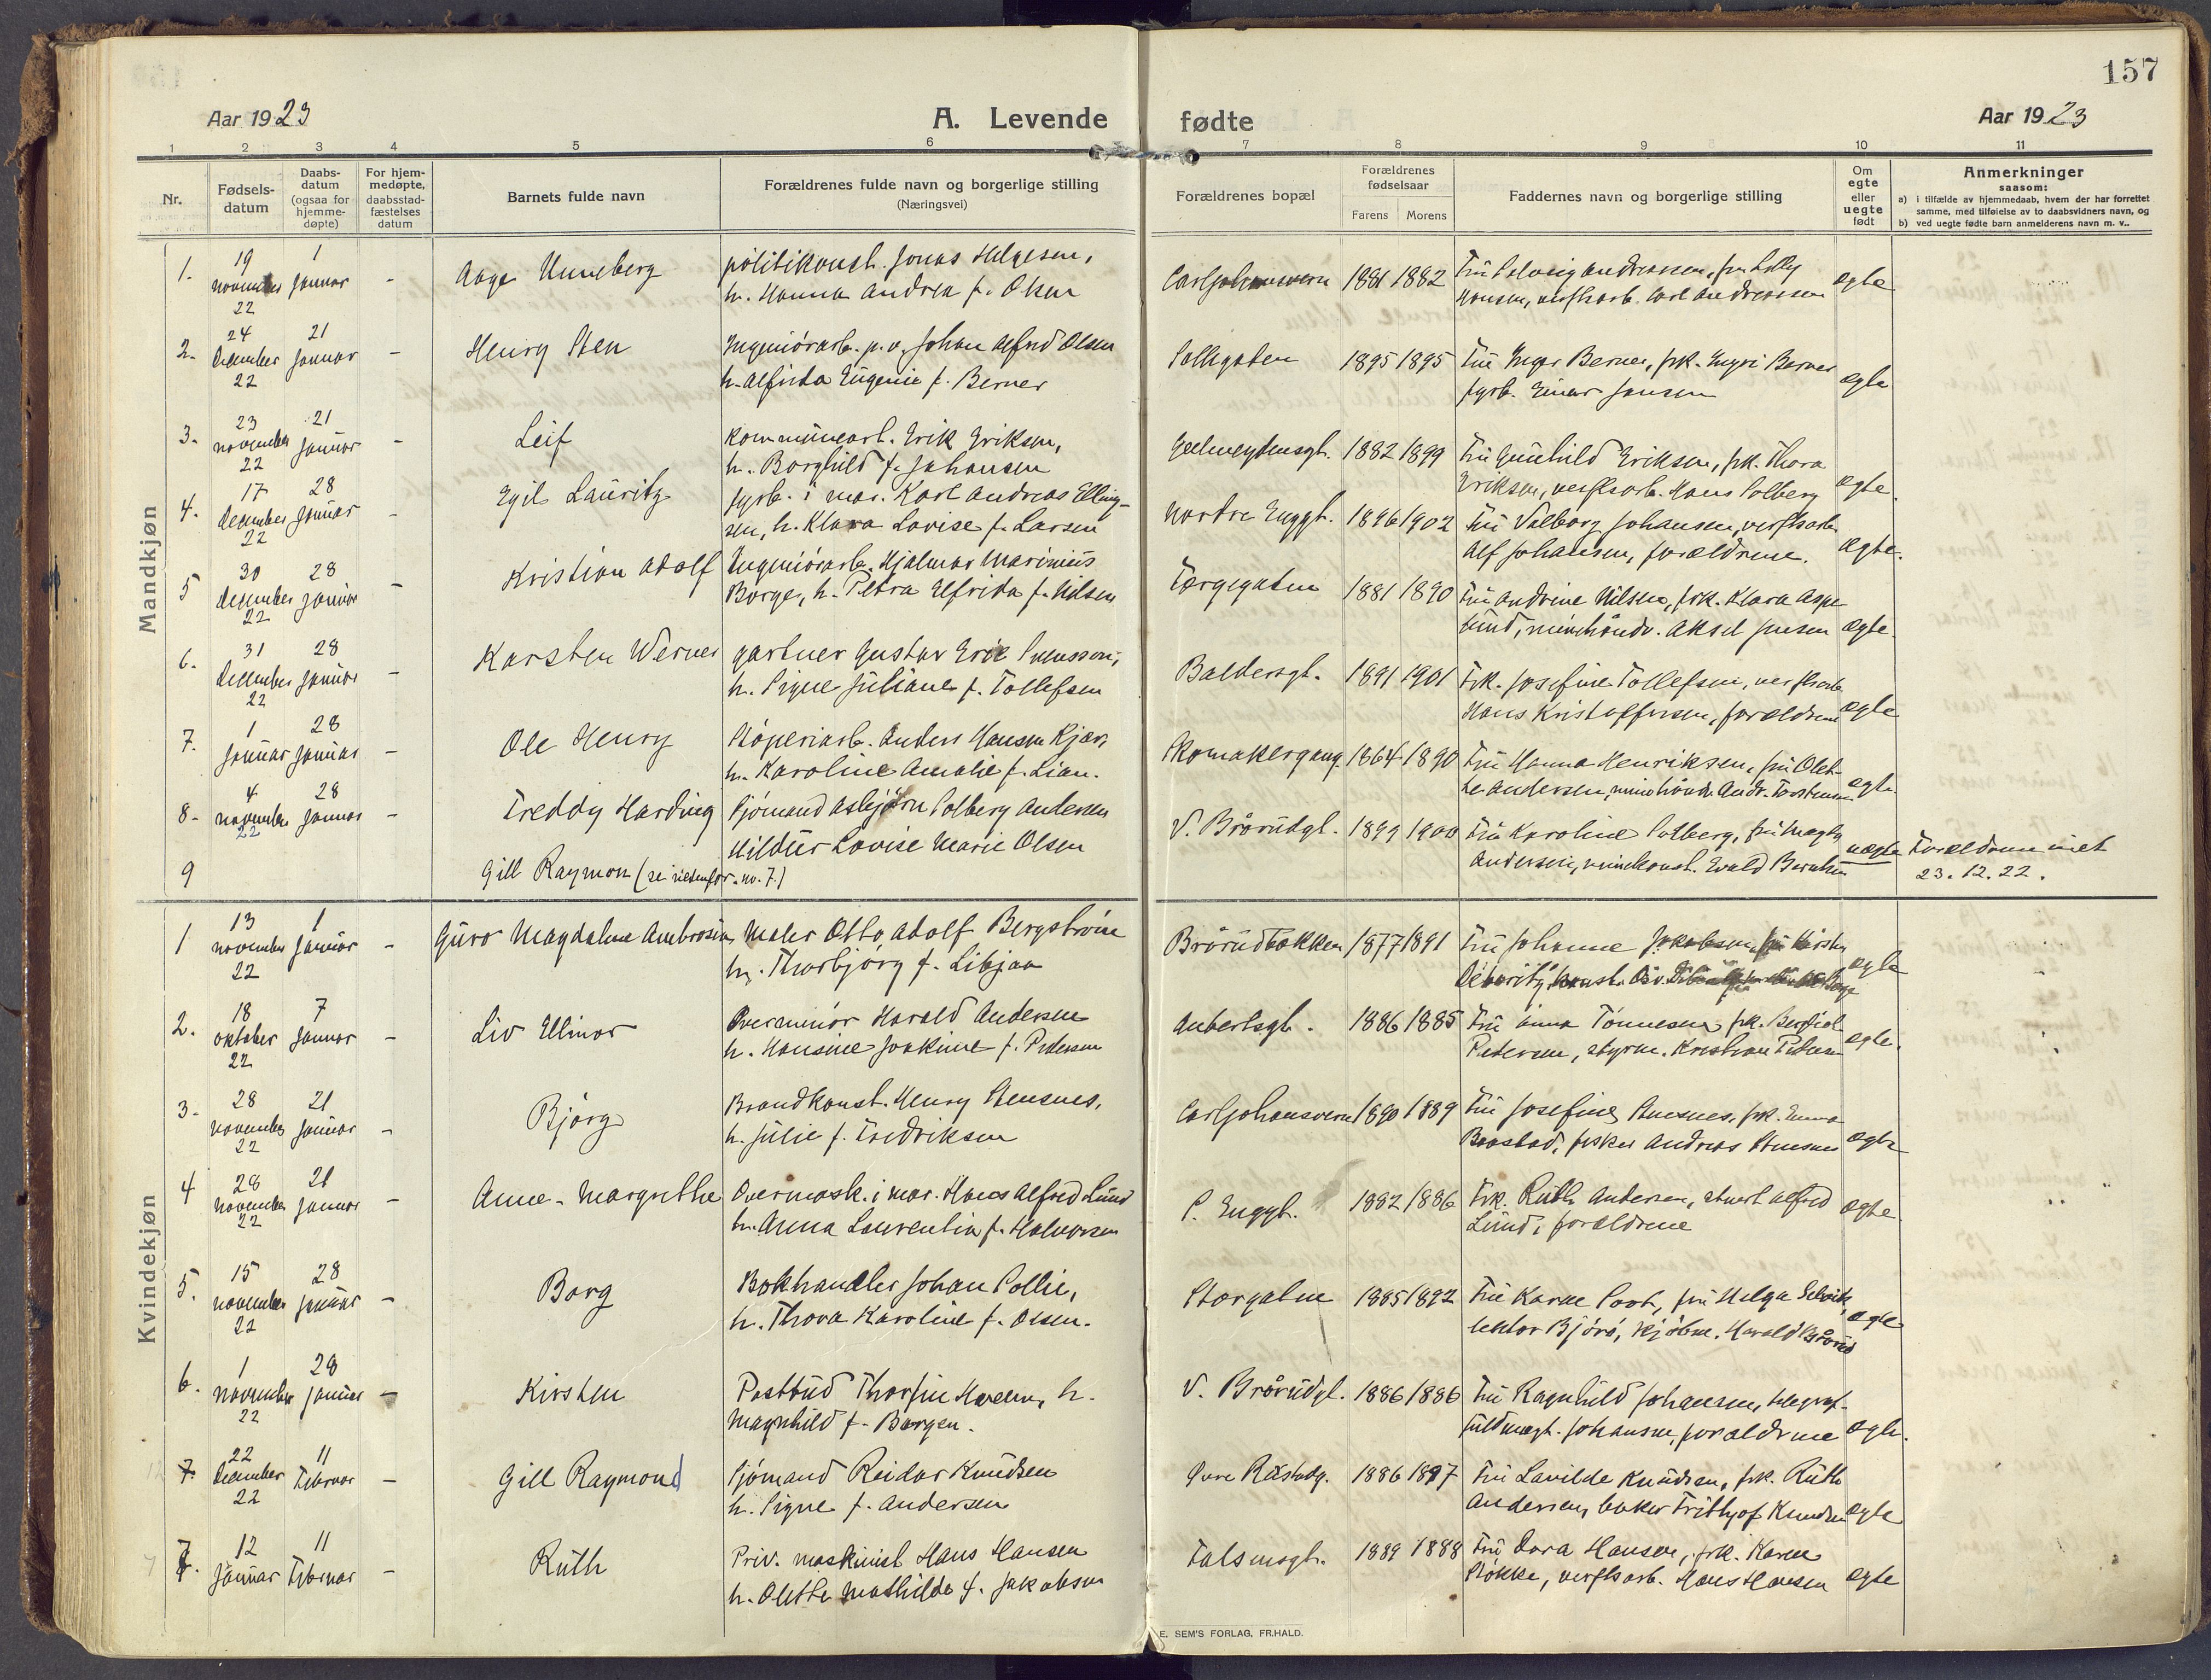 157
Aar 1923
A. Levende
fødte
Aar 1923
1 2 3 4 5 6 7 8 9 10 11
Nr.
Fødsels-
datum
Daabs-
datum
(ogsaa for
hjemme-
døpte)
For hjem-
medøpte,
daabsstad-
fæstelses
datum
Barnets fulde navn
Forældrenes fulde navn og borgerlige stilling
(Næringsvei)
Forældrenes bopæl
Forældrenes
fødselsaar
Farens Morens
Faddernes navn og borgerlige stilling
Om
egte
eller
uegte
født
Anmerkninger
saasom:
a) i tilfælde av hjemmedaab, hvem der har forrettet
samme, med tilføielse av to daabsvidners navn, og
b) ved uegte fødte barn anmelderens navn m. v..
Mandkjøn
1. 19 november 22 1 januar - Aage Unneberg
politikonst. Jonas Helgesen,
h. Hanna Andrea f. Olsen
Carljohansvern 1881 1882
Fru Solveig Andreassen, fru
Hansen, verftsarb. Carl Andreassen
egte
2. 24 december 22 21 januar - Henry Sten
Ingeniörarb. p.v. Johan Alfred Olsen
h. Alfrida Eugenie f. Berner
1895 1895
Fru Inger Berner, frk. Ingri Berner
fyrb. Einar Jansen
egte
3. 23 november 22 21 januar - Leif
Kommunearb. Erik Eriksen,
h. Borghild f. Johansen
Gjelmeydensgt. 1882 1899
Fru Gunhild Eriksen, frk. Thora
Eriksen, verftsarb. Hans Solberg
egte.
4. 17 december 22 28 januar - Egil Lauritz
fyrb. i mar. Karl Andreas Elling-
sen, h. Klara Lovise f. Larsen
Nordre Enggt. 1896 1902
Fru Valborg Johansen, verftsarb.
Alf Johansen, forældrene.
egte.
5 30 december 22 28 januar - Kristian Adolf
Ingeniörarb. Hjalmar Marinius
Borge, h. Petra Elfrida f. Nilsen
Torgegaten 1881 1890
Fru Andrine Nilsen, frk. Klara Aspe
lund, minehåndv. Aksel Jensen
egte.
6. 31 december 22 28 januar - Karsten Werner
gartner Gustav Erik Svensson,
h. Signe Juliane f. Tollefsen
Baldersgt. 1891 1901
Frk. Josefine Tollefsen, verftsarb.
Hans Kristoffersen, forældrene
egte
7. 1 januar 28 januar - Ole Henry
Stöperiarb. Anders Hansen Kjær,
h. Karoline Amalie f. Lian.
Skomakergang. 1864 1890
Fru Hanna Henriksen, fru Olet-
te Andersen, minehåndv. Andr. Torstensen
egte.
8. 4 november 22 28 januar - Freddy Harding
Sjömand Asbjørn Solberg Andersen
Hildur Lovise Marie Olsen
V. Brårudgt. 1899 1900
Fru Karoline Solberg, fru Magly
Andersen, minekonst. Evald Berntsen
uegte
Forældrene viet
23.12.22.
9 Gill Raymon (se nedenfor no. 7.)
Kvindekjøn
1 13 november 22 1 januar - Guro Magdalene Ambrosia
Maler Otto Adolf Bergström
h. Thorbjörg f. Libjaa
Brårudbakken 1877 1891
Fru Johanne Jakobsen, fru Kirsten
egte
2. 18 oktober 22 7 januar - Liv Ellinor
Overminör Harald Andersen
h. Hansine Joakime f. Pedersen
Aubertsgt. 1886 1885
Fru Anna Tönnesen, frk. Bergliot
Petersen, styrm. Kristian Petersen
egte.
3. 28 november 22 21 januar - Bjórg
Brandkonst. Henry Stensnes,
h. Julie f. Fredriksen
Carljohansvern 1890 1889
Fru Josefine Stensnes, frk. Emma
Baastad, fisker Andreas Stensnes
egte
4 28 november 22 21 januar - Anne-Margrethe
Overmask. i mar. Hans Alfred Lund
h. Anna Laurentia f. Halvorsen
S. Enggt. 1882 1886
Frk. Ruth Andersen, stuert Alfred
Lund, forældrene
egte.
5. 15 november 22 28 januar - Borg
Bokhandler Johan Sollie,
h. Thora Karoline f. Olsen.
Storgaten 1885 1892
Fru Karen Soot, fru Helga Selvik,
lektor Björö, kjöbm. Harald Brårud
egte
6. 1 november 22 28 januar - Kirsten
Postbud Thorfin Haven, h.
Magnhild f. Borgen.
V. Brårudgt. 1886 1886
Fru Ragnhild Johansen, telegraf-
fuldmægt. Johansen, forældrene
egte.
7. 22 december 22 11 februar - Gill Raymond
Sjömand Reidar Knudsen
h. Signe f. Andersen
Övre Råstadg. 1886 1897
Fru Lavilde Knudsen, frk. Ruth
Andersen, baker Frithjof Knudsen
egte
7. 12 januar 11 februar - Ruth
Priv. maskinist Hans Hansen
h. Olette Mathilde f. Jakobsen
Falsensgt. 1889 1888
Fru Dora Hansen, frk. Karen
Stökke, verftsarb. Hans Hansen
egte
E. SEM'S FORLAG, FR.HALD.